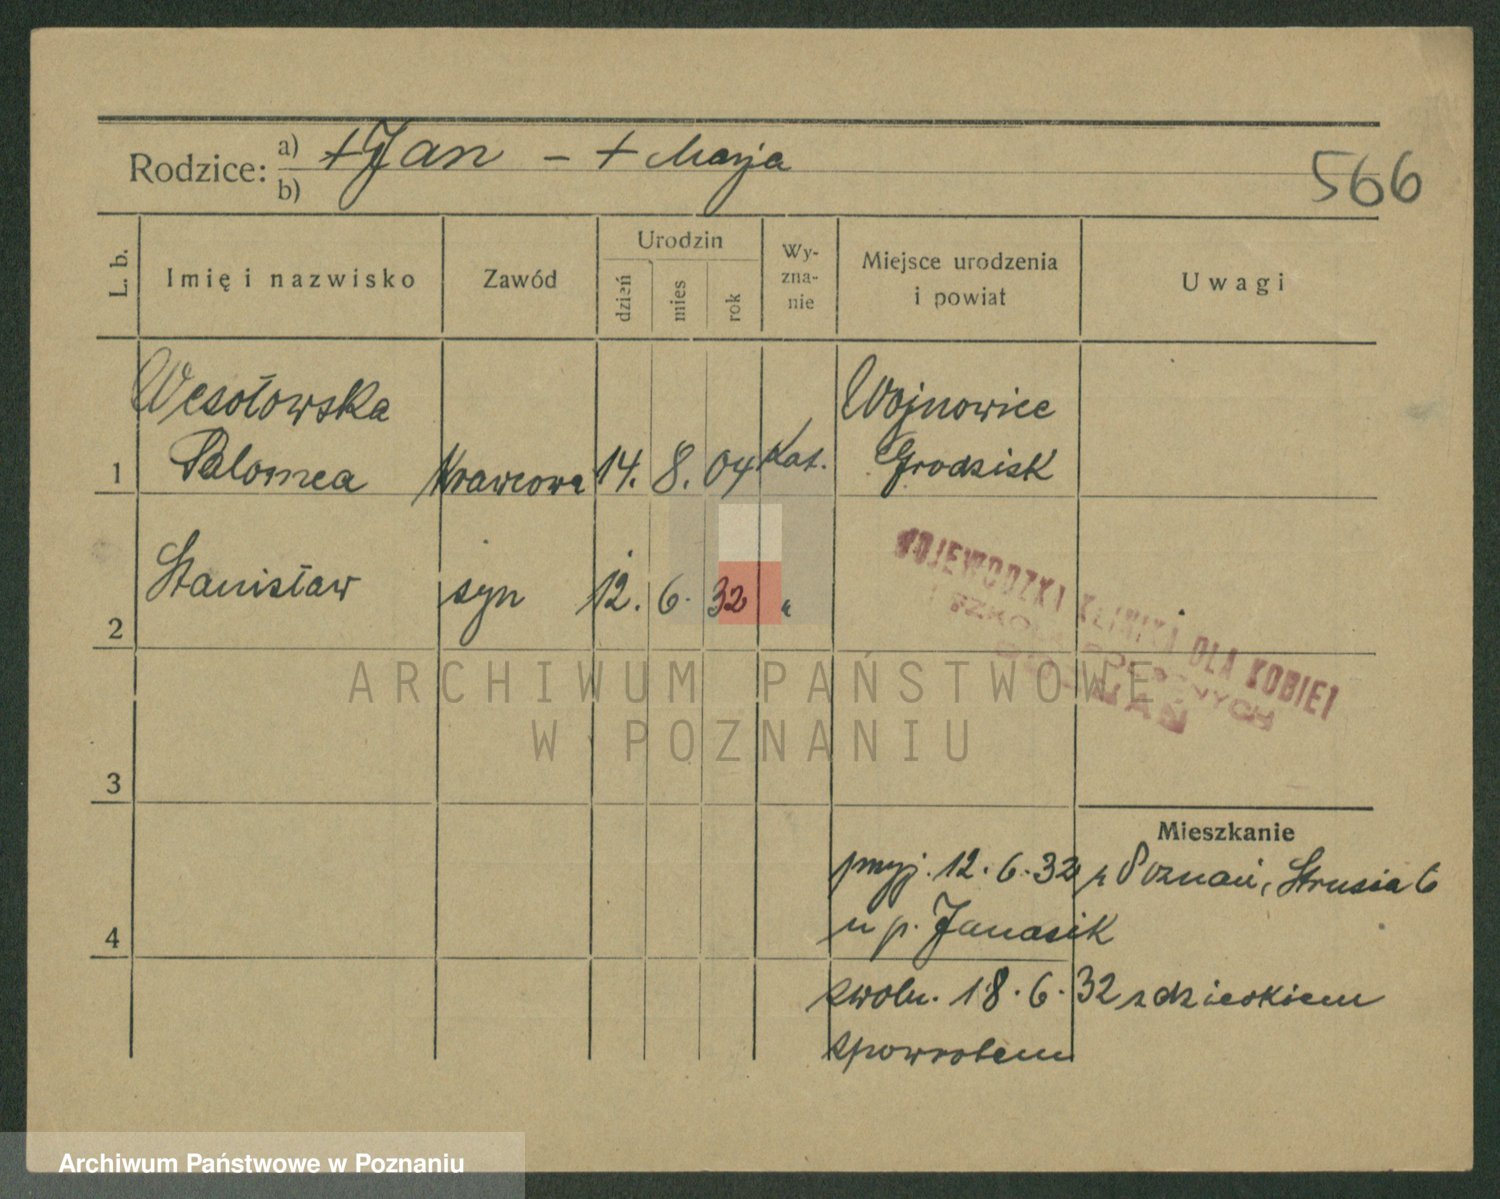 Rodzice: a) + Jan - + Marja
b)
566
L. b.
Imię i nazwisko
Zawód
Urodzin
dzień
mies
rok
Wy-
zna-
nie
Miejsce urodzenia
i powiat
Uwagi
Wesołowska Wojnowice
1 Salomea Krawcowa 14. 8. 04 Kat. Grodzisk
2 Stanisław syn 12. 6. 32 "
WOJEWODZKA KLINIKA DLA KOBIET
I SZKOŁA POŁOŻNYCH
POZNAŃ
ARCHIWUM PAŃSTWOWE
W POZNANIU
3
Mieszkanie
przyj. 12. 6. 32 z Poznań, Strusia 6
4 u p. Janasik
zwoln. 18. 6. 32 z dzieckiem
spowrotem
Archiwum Państwowe w Poznaniu